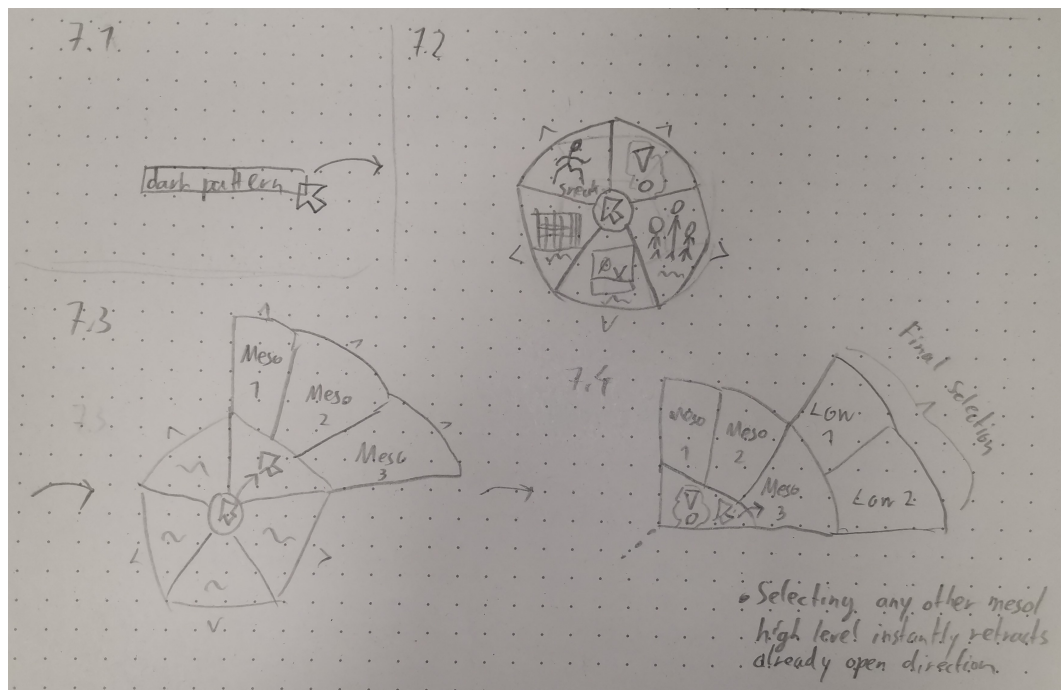 7.1
dark pattern
7.2
Sneak
7.3
7.3
Meso
1
Meso
2
Meso
3
7.4
Meso
1
Meso
2
Meso
3
Low
1
Low 2
Final Selection
• Selecting any other meso/
high level instantly retracts
already open direction.